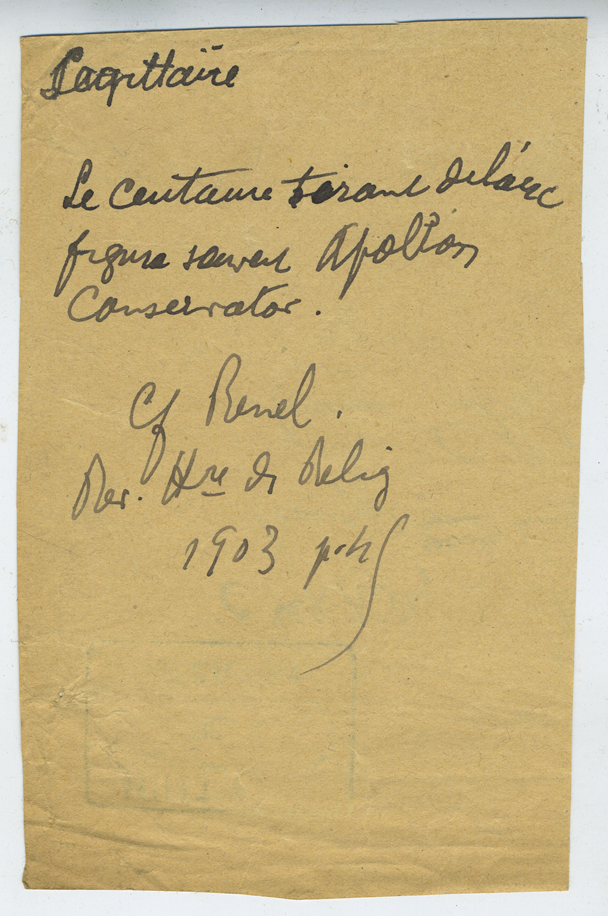 Sagittaire
Le centaure tirant de l'arc
figure souvent Apollon
Conservator.
Cf Renel.
Rev. Hre des Relig
1903 p.